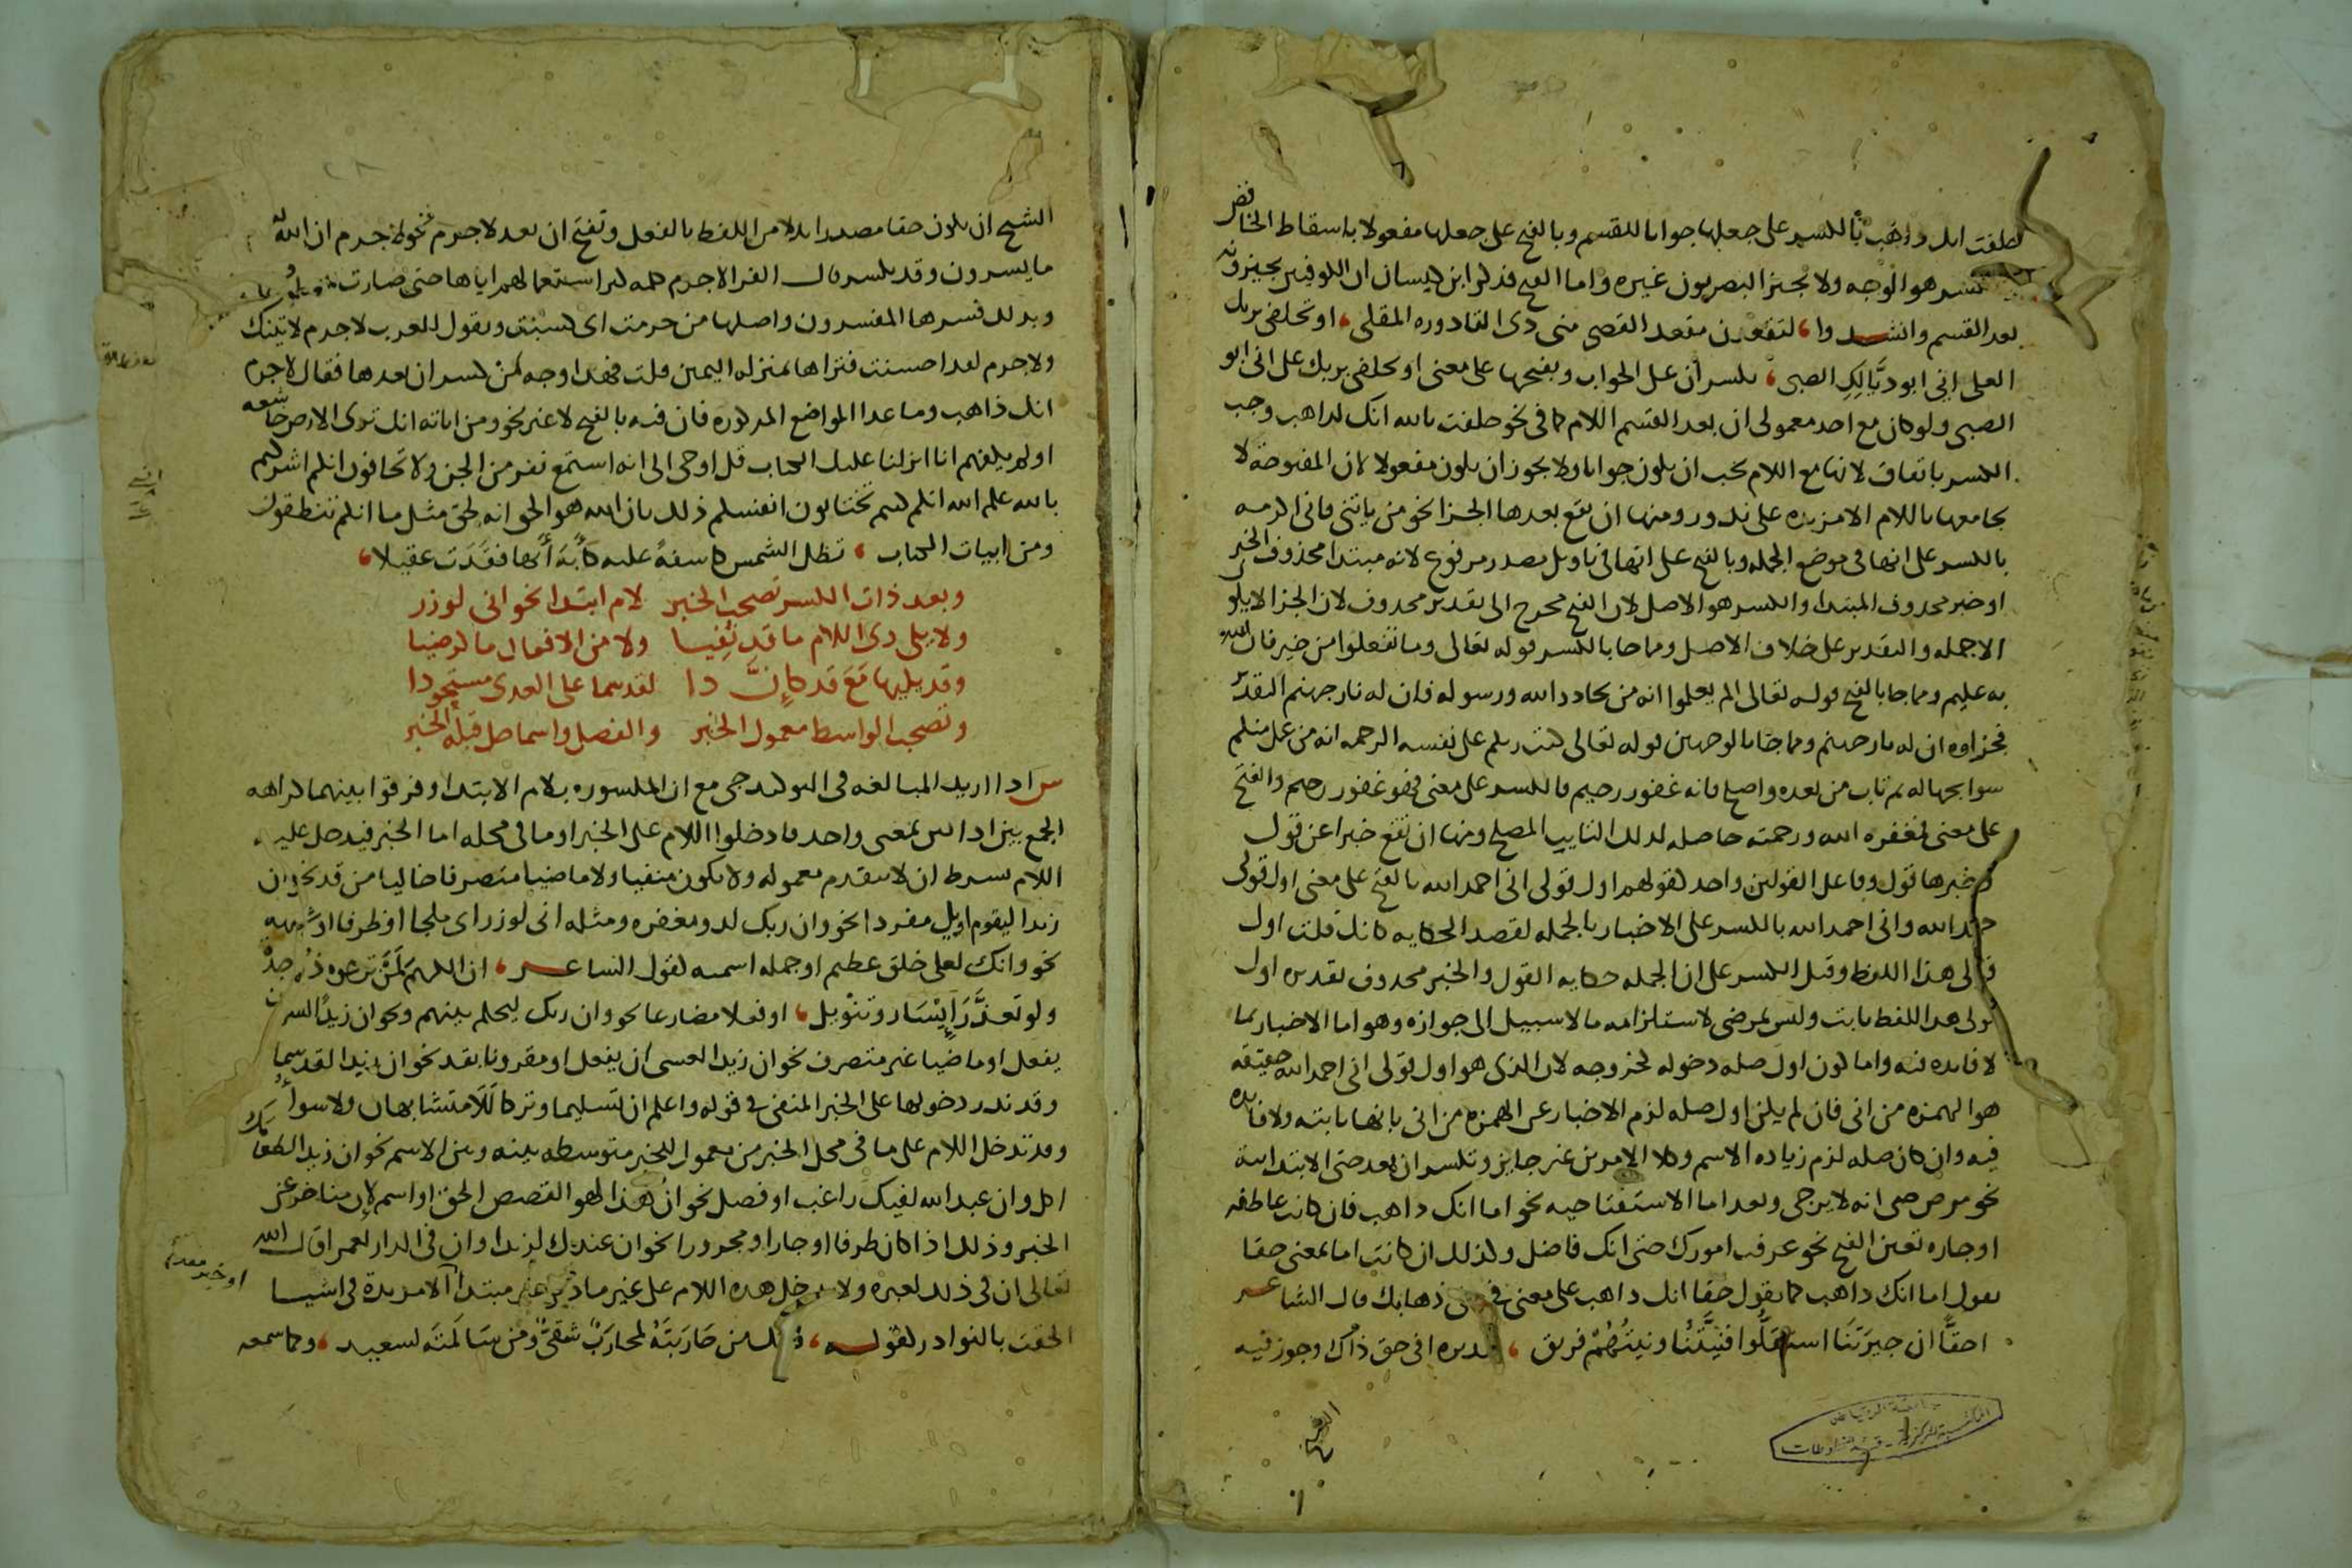 حلفت انك ذاهب بالكسر على جعلها جوابا للقسم وبالفتح على جعلها مفعولا باسقاط الخافض
والكسر هو الوجه ولا يجيز البصريون غيره واما الفتح فذكر ابن كيسان ان الكوفيين يجيزونه
بعد القسم وانشدوا ، لتقعدن مقعد القصي مني ذي القاذورة المقلي ، او تحلفي بربك
العلي اني ابو ذيالك الصبي ، بكسر ان على الجواب وبفتحها على معنى او تحلفي بربك على اني ابو
الصبي ولو كان مع احد معمولي ان بعد القسم اللام كما في نحو حلفت بالله انك لذاهب وجب
الكسر باتفاق لانها مع اللام يجب ان يكون جوابا ولا يجوز ان يكون مفعولا لان المفتوحة لا
تجامعها اللام الا مزيدة على ندور ومنها ان تقع بعدها الجزا نحو من ياتني فاني اكرمه
بالكسر على انها في موضع الجملة وبالفتح على انها في تاويل مصدر مرفوع لانه مبتدا محذوف الخبر
او خبر محذوف المبتدا والكسر هو الاصل لان الفتح محوج الى تقدير محذوف لان الجزا لا يكون
الا جملة والتقدير على خلاف الاصل ومما جا بالكسر قوله تعالى وما تفعلوا من خير فان الله
به عليم ومما جا بالفتح قوله تعالى الم يعلموا انه من يحادد الله ورسوله فان له نار جهنم التقدير
فجزاوه ان له نار جهنم ومما جا بالوجهين قوله تعالى كتب ربكم على نفسه الرحمة انه من عمل منكم
سوا بجهالة ثم تاب من بعده واصلح فانه غفور رحيم فالكسر على معنى فهو غفور رحيم والفتح
على معنى فمغفرة الله ورحمته حاصلة لذلك التايب المصلح ومنها ان تقع خبرا عن قول
وخبرها قول وفاعل القولين واحد كقولهم اول قولي اني احمد الله بالفتح على معنى اول قولي
حمد الله واني احمد الله بالكسر على الاخبار بالجملة لقصد الحكاية كانك قلت اول
قولي هذا اللفظ وقيل الكسر على ان الجملة حكاية القول والخبر محذوف تقديره اول
قولي هذا اللفظ ثابت وليس بمرضي لاستلزامه ما لا سبيل الى جوازه وهو اما الاخبار بما
لا فايدة فيه واما كون اول صلة دخوله كخروجه لان الذي هو اول قولي اني احمد الله حقيقة
هو الهمزة من اني فان لم يكن اول صلة لزم الاخبار عن الهمزة من اني بانها ثابتة ولا فايدة
فيه وان كان صلة لزم زيادة الاسم وكلا الامرين غير جايز وتكسر ان بعد حتى الابتدائية
نحو مرض حتى انه لا يرجى وبعد اما الاستفتاحية نحو اما انك ذاهب فان كانت عاطفة
او جارة تعين الفتح نحو عرفت امورك حتى انك فاضل وكذلك ان كانت اما بمعنى حقا
تقول اما انك ذاهب كما تقول حقا انك ذاهب على معنى في حق ذهابك قال الشاعر
احقا ان جيرتنا استقلوا فنيتنا ونيتهم فريق ، تقديره افي حق ذاك وجوز فيه
الشيخ
الشيخ ان يكون حقا مصدرا بدلا من اللفظ بالفعل وتفتح ان بعد لا جرم نحو لا جرم ان الله
ما يسرون وقد يكسر قال الفرا لا جرم كلمة كثر استعمالهم اياها حتى صارت
وبذلك فسرها المفسرون واصلها من جرمت اي كسبت وتقول العرب لا جرم لاتينك
ولا جرم لقد احسنت فتراها بمنزلة اليمين قلت فهذا وجه من كسر ان بعدها فقال لا جرم
انك ذاهب وما عدا المواضع المذكورة فان فيه بالفتح لا غير نحو ومن اياته انك ترى الارض خاشعة
اولم يكفهم انا انزلنا عليك الكتاب قل اوحي الي انه استمع نفر من الجن ولا تخافون انكم اشركتم
بالله علم الله انكم كنتم تختانون انفسكم ذلك بان الله هو الحق انه لحق مثل ما انكم تنطقون
ومن ابيات الكتاب ، تظل الشمس كاسفة عليه كآبة أنها فقدت عقيلا ،
وبعد ذات الكسر تصحب الخبر لام ابتدا نحو اني لوزر
ولا يلي ذي اللام ما قد نفيا ولا من الافعال ما كرضيا
وقد يليها مع قد كإن ذا لقد سما على العدى مستحوذا
وتصحب الواسط معمول الخبر والفصل واسما حل قبله الخبر
س اذا اريد المبالغة في التوكيد جي مع ان المكسورة بلام الابتدا وفرقوا بينهما كراهة
الجمع بين اداتين بمعنى واحد فادخلوا اللام على الخبر او ما في محله اما الخبر فيدخل عليه
اللام بشرط ان لا يتقدم معموله ولا يكون منفيا ولا ماضيا متصرفا خاليا من قد نحو ان
زيدا ليقوم او يكون مفردا نحو وان ربك لذو مغفرة ومثله اني لوزر اي ملجا او ظرفا او شبهه
نحو وانك لعلى خلق عظيم او جملة اسمية كقول الشاعر ، ان الكريم لمن ترجوه ذو جدة
ولو تعذر إيسار وتنويل ، او فعلا مضارعا نحو وان ربك ليحكم بينهم ونحو ان زيدا لسوف
يفعل او ماضيا غير متصرف نحو ان زيدا لعسى ان يفعل او مقرونا بقد نحو ان زيدا لقد سما
وقد ندر دخولها على الخبر المنفي في قوله واعلم ان تسليما وتركا للا متشابهان ولا سوا
وقد تدخل اللام على ما في محل الخبر من معمول الخبر متوسطه بينه وبين الاسم نحو ان زيدا لطعامك
اكل وان عبد الله لفيك راغب او فصل نحو ان هذا لهو القصص الحق او اسم لان متاخر عن
الخبر وذلك اذا كان ظرفا او جارا ومجرورا نحو ان عندك لزيدا وان في الدار لعمرا قال الله
تعالى ان في ذلك لعبرة ولا تدخل هذه اللام على غير ما ذكر مبتدا الا مزيدة في اشيا
او خبر مقدم
الحقت بالنوادر كقوله ، فانك من حاربته لمحارب شقي ومن سالمته لسعيد ، وكما سمعه